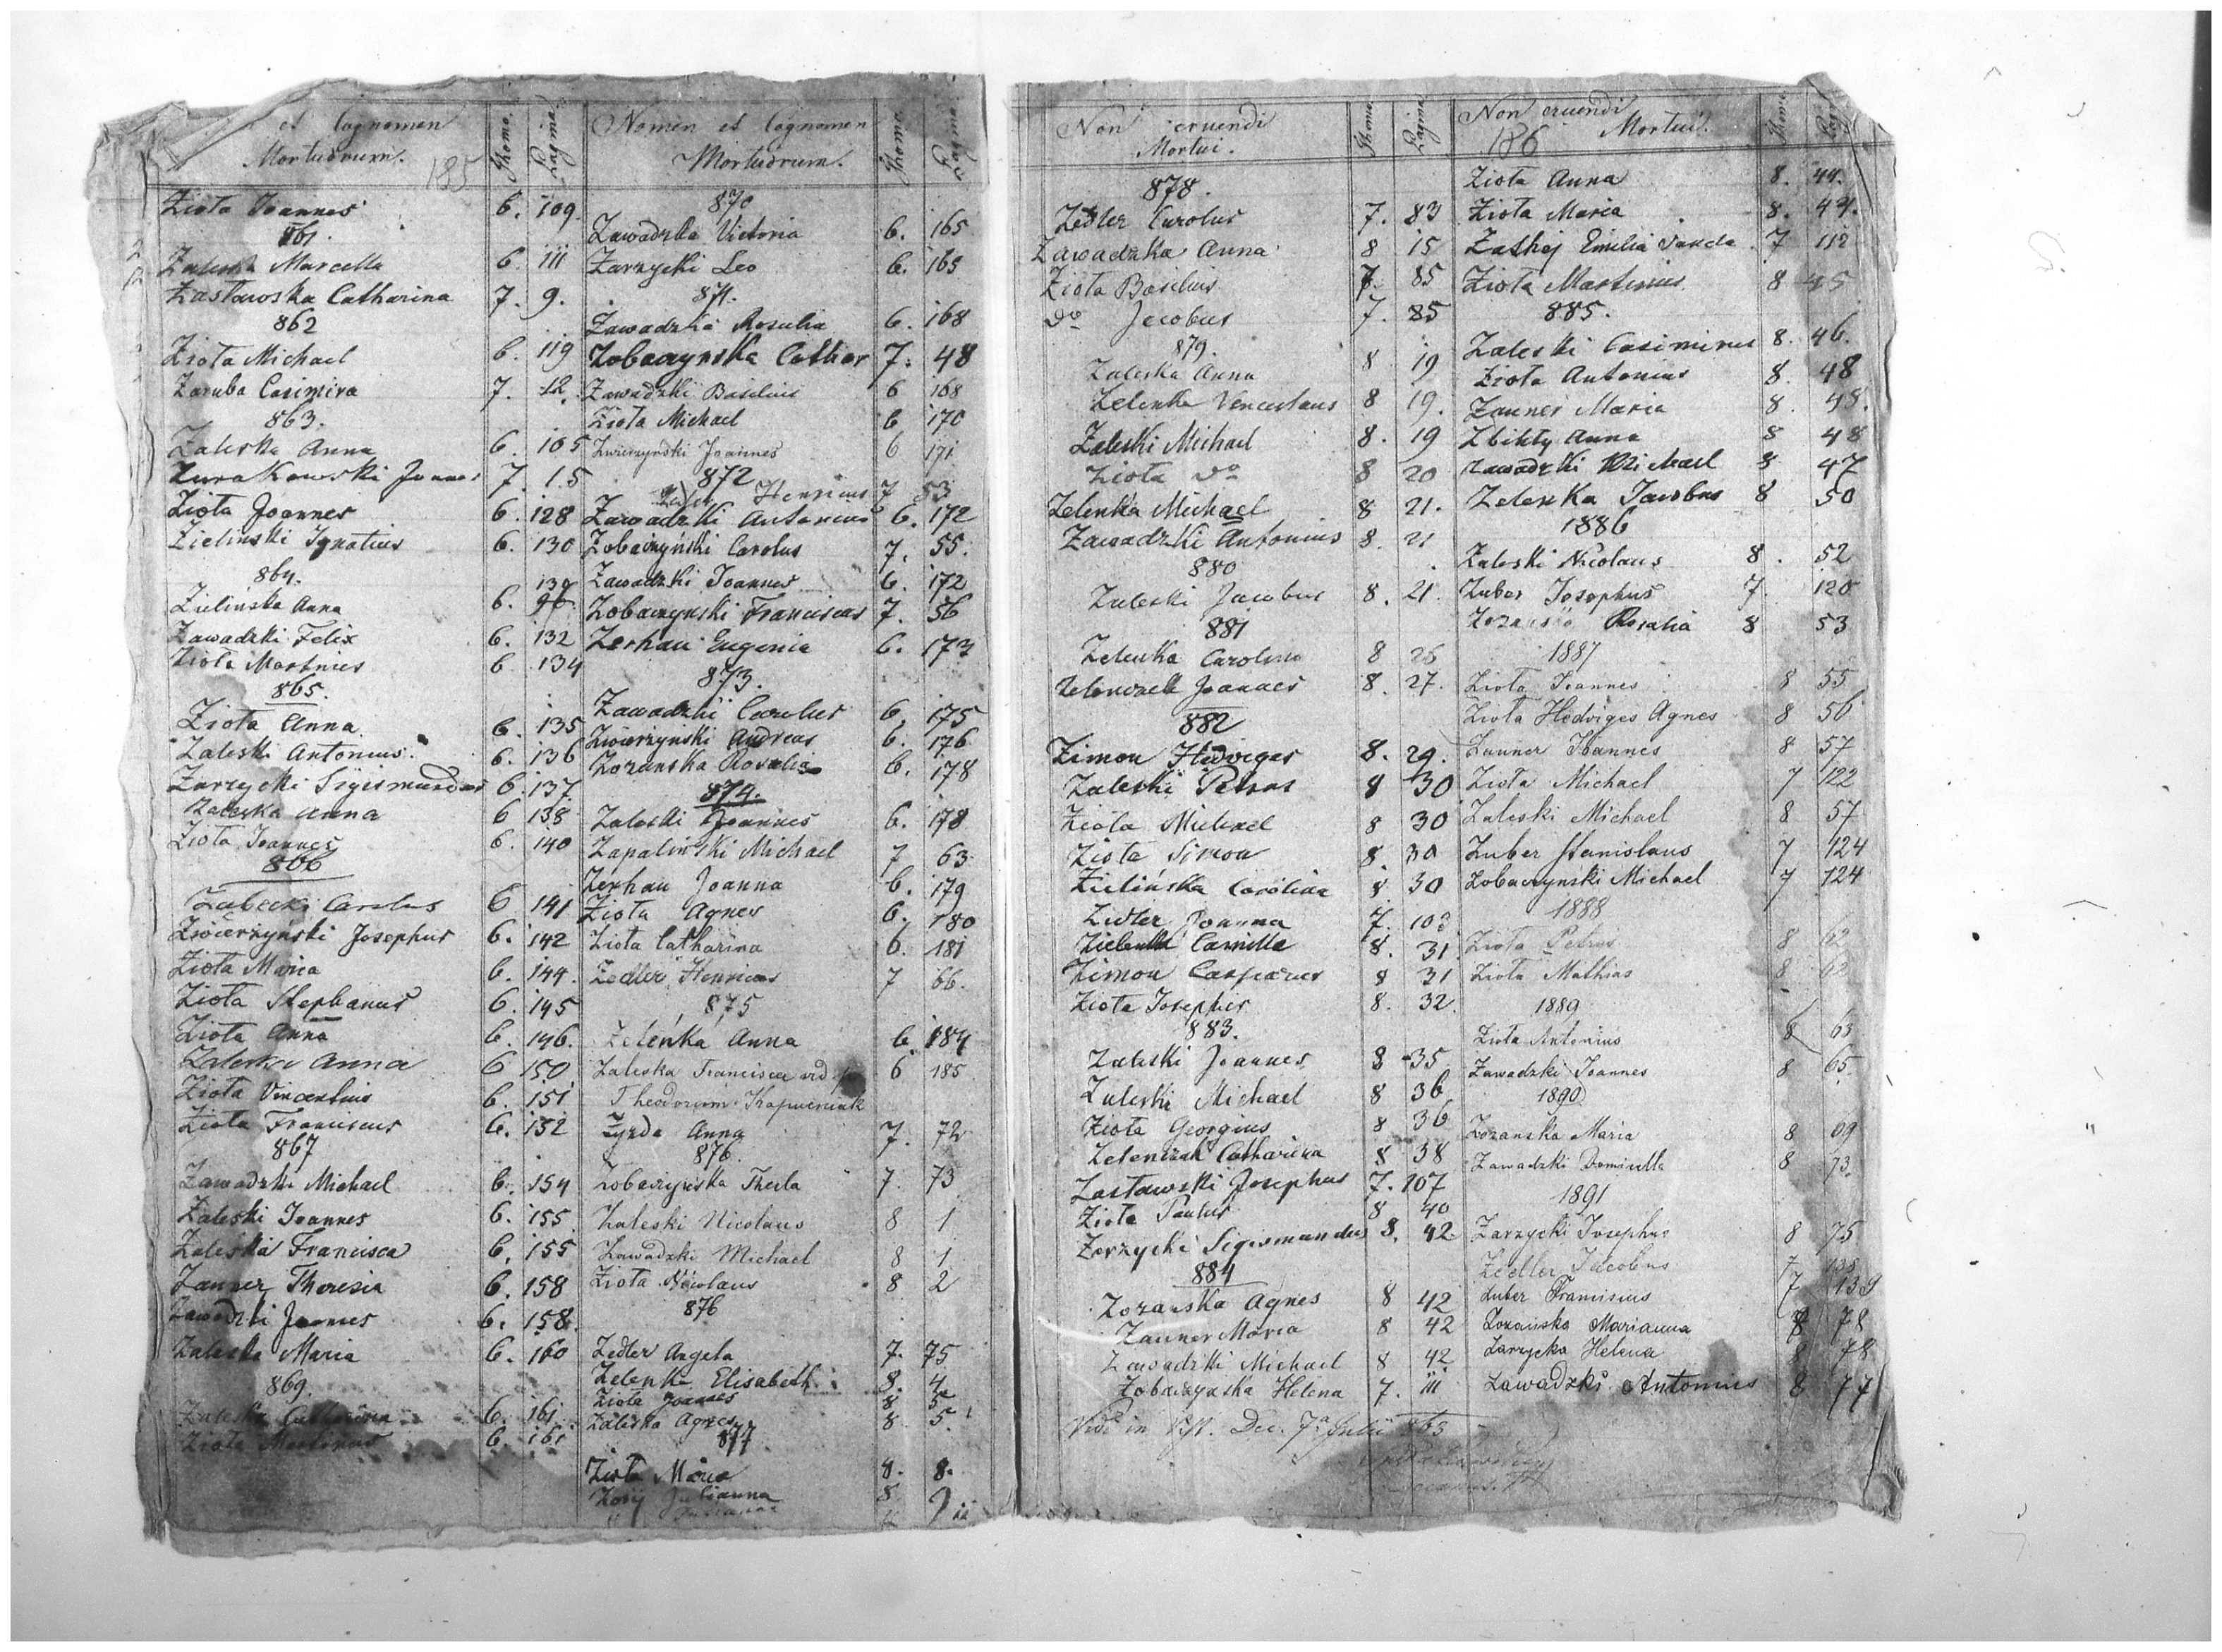 et Cognomen
Mortuorum. 185 Thoma Pagina
Ziota Joannes 6. 109.
861.
Zaleska Marcella 6. 111
Zastawska Catharina 7. 9.
862
Ziota Michael 6. 119
Zaruba Casimira 7. 12.
863.
Zaleska Anna 6. 105
Zurakowski Joannes 7. 15
Ziota Joannes 6. 128
Zieliński Ignatius 6. 130
864.
139
Zielińska Anna 6.
Zawadzki Felix 6. 132
Ziota Martinus 6 134
865.
Ziota Anna 6. 135
Zaleski Antonius. 6. 136
Zarzycki Sigismundus 6. 137
Zaleska Anna 6 138
Ziota Joannes 6. 140
866
Zubecki Carolus 6 141
Zwierzyński Josephus 6. 142
Ziota Maria 6. 144.
Ziota Stephanus 6. 145
Ziota Anna 6. 146.
Zaleska Anna 6 150
Ziota Vincentius 6. 151
Ziota Franciscus 6. 152
867
Zawadzki Michael 6. 154
Zaleski Joannes 6. 155
Zaleska Francisca 6. 155
Zauner Theresia 6. 158
Zawadzki Joannes 6. 158.
Zaleska Maria 6. 160
869.
Zaleska Catharina 6. 161
Ziota Martinus 6. 161
Nomen et Cognomen
Mortuorum. Thoma Pagina
870
Zawadzka Victoria 6. 165
Zarzycki Leo 6. 165
871.
Zawadzka Rosalia 6. 168
Zobaczynska Cathar 7. 48
Zawadzki Basilius 6 168
Ziota Michael 6 170
Zwierzyński Joannes 6 171
872
Henricus 7 53
Zawadzki Antonius 6. 172
Zobaczyński Carolus 7. 55.
Zawadzki Joannes 6. 172
Zobaczynski Franciscus 7. 56
Zerhau Eugenia 6. 173
873.
Zawadzki Carolus 6, 175
Zwierzynski Andreas 6. 176
Zozanska Rosalia 6. 178
874.
Zaleski Joannes 6. 178
Zapaliński Michael 7 63
Zerhau Joanna 6. 179
Ziota Agnes 6. 180
Ziota Catharina 6. 181
Zedler Henricus 7 66.
875
Zelenka Anna 6 184
Zaleska Francisca vid 6 185
Theodorum Kapuscniak
Zyzda Anna 7. 72
876.
Zobaczynska Thecla 7. 73
Zaleski Nicolaus 8 1
Zawadzki Michael 8 1
Ziota Nicolaus 8 2
876
Zedler Angela 7. 75
Zelenka Elisabeth 8. 4
Ziota Joannes 8 5
Zaleska Agnes 8. 5
877.
Ziota Maria 8. 8.
Zory Julianna 8
Non eruendi
Mortui. Thoma Pagina
878.
Zedler Carolus 7. 83
Zawadzka Anna 8 15
Ziota Basilius 7. 85
do Jacobus 7. 85
879.
Zaleska Anna 8 19
Zelenka Venceslaus 8 19.
Zaleski Michael 8. 19
Ziota do 8 20
Zelenka Michael 8 21.
Zawadzki Antonius 8. 21
880
Zaleski Jacobus 8. 21.
881
Zelenka Carolina 8 25
Zelenczak Joannes 8. 27.
882
Zimon Hedviges 8. 29.
Zaleski Petrus 8 30
Ziota Michael 8 30
Ziota Simon 8. 30
Zielińska Carolina 8. 30
Zidler Joanna 7. 103
Zielenka Camilla 8. 31
Zimon Casparus 8 31
Ziota Josephus 8. 32.
883.
Zaleski Joannes 8 35
Zaleski Michael 8 36
Ziota Georgius 8 36
Zelenczak Catharina 8 38
Zastawski Josephus 7. 107
Ziota Paulus 8 40
Zarzycki Sigismundus 8. 42.
884
Zozanska Agnes 8 42
Zauner Maria 8 42
Zawadzki Michael 8 42
Zobaczynska Helena 7. 111
Vidi in Vist. Dec. 7a Julii 863
Non eruendi
186 Mortui. Thoma Pagina
Ziota Anna 8. 44.
Ziota Maria 8. 44.
Zathej Emilia Vanda 7 112
Ziota Martinus 8 45
885.
Zaleski Casimirus 8. 46.
Ziota Antonius 8. 48
Zauner Maria 8. 48.
Zbikty Anna 8 48
Zawadzki Michael 8 47
Zelenka Jacobus 8 50
1886
Zaleski Nicolaus 8. 52
Zuber Josephus 7. 120
Zozanska Rosalia 8 53
1887
Ziota Joannes 8 55
Ziota Hedviges Agnes 8 56
Zauner Joannes 8 57
Ziota Michael 7 122
Zaleski Michael 8 57
Zuber Stanislaus 7 124
Zobaczynski Michael 7 124
1888
Ziota Petrus 8 62
Ziota Mathias 8 62
1889
Ziota Antonius 8 65
Zawadzki Joannes 8 65.
1890
Zozanska Maria 8 69
Zawadzki Dominilla 8 73.
1891
Zarzycki Josephus 8 75
Zedler Jacobus 7 135
Zuber Franciscus 7 139
Zozanska Marianna 8 78
Zarzycka Helena 8 78
Zawadzki Antonius 8 77